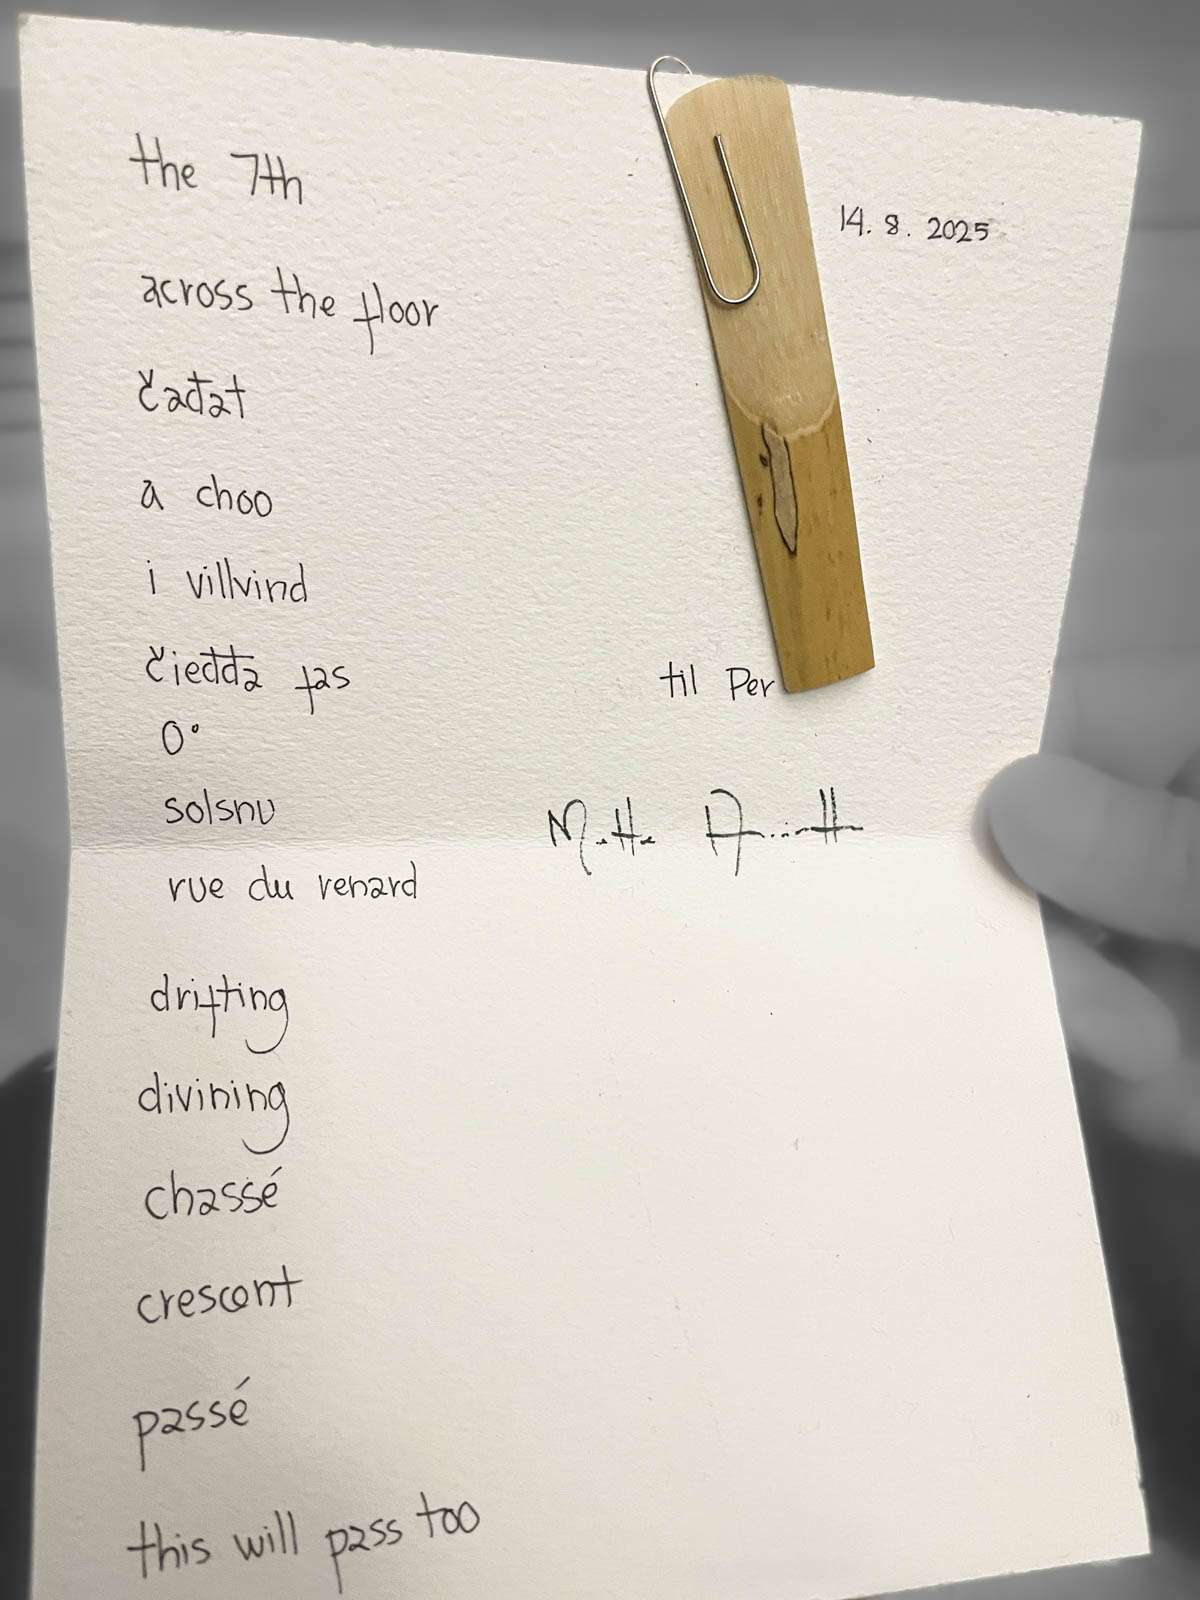 the 7th
14. 8. 2025
across the floor
čađat
a choo
i villvind
čieđđa fas
til Per
0°
solsnu
rue du renard
drifting
divining
chassé
crescent
passé
this will pass too